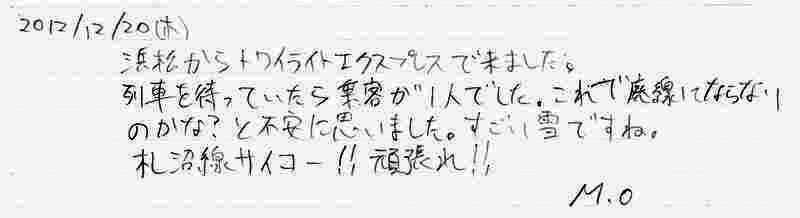 2012/12/20(木)
浜松からトワイライトエクスプレスで来ました。
列車を待っていたら乗客が1人でした。これで廃線にならない
のかな？と不安に思いました。すごい雪ですね。
札沼線サイコー!!頑張れ!!
M.O